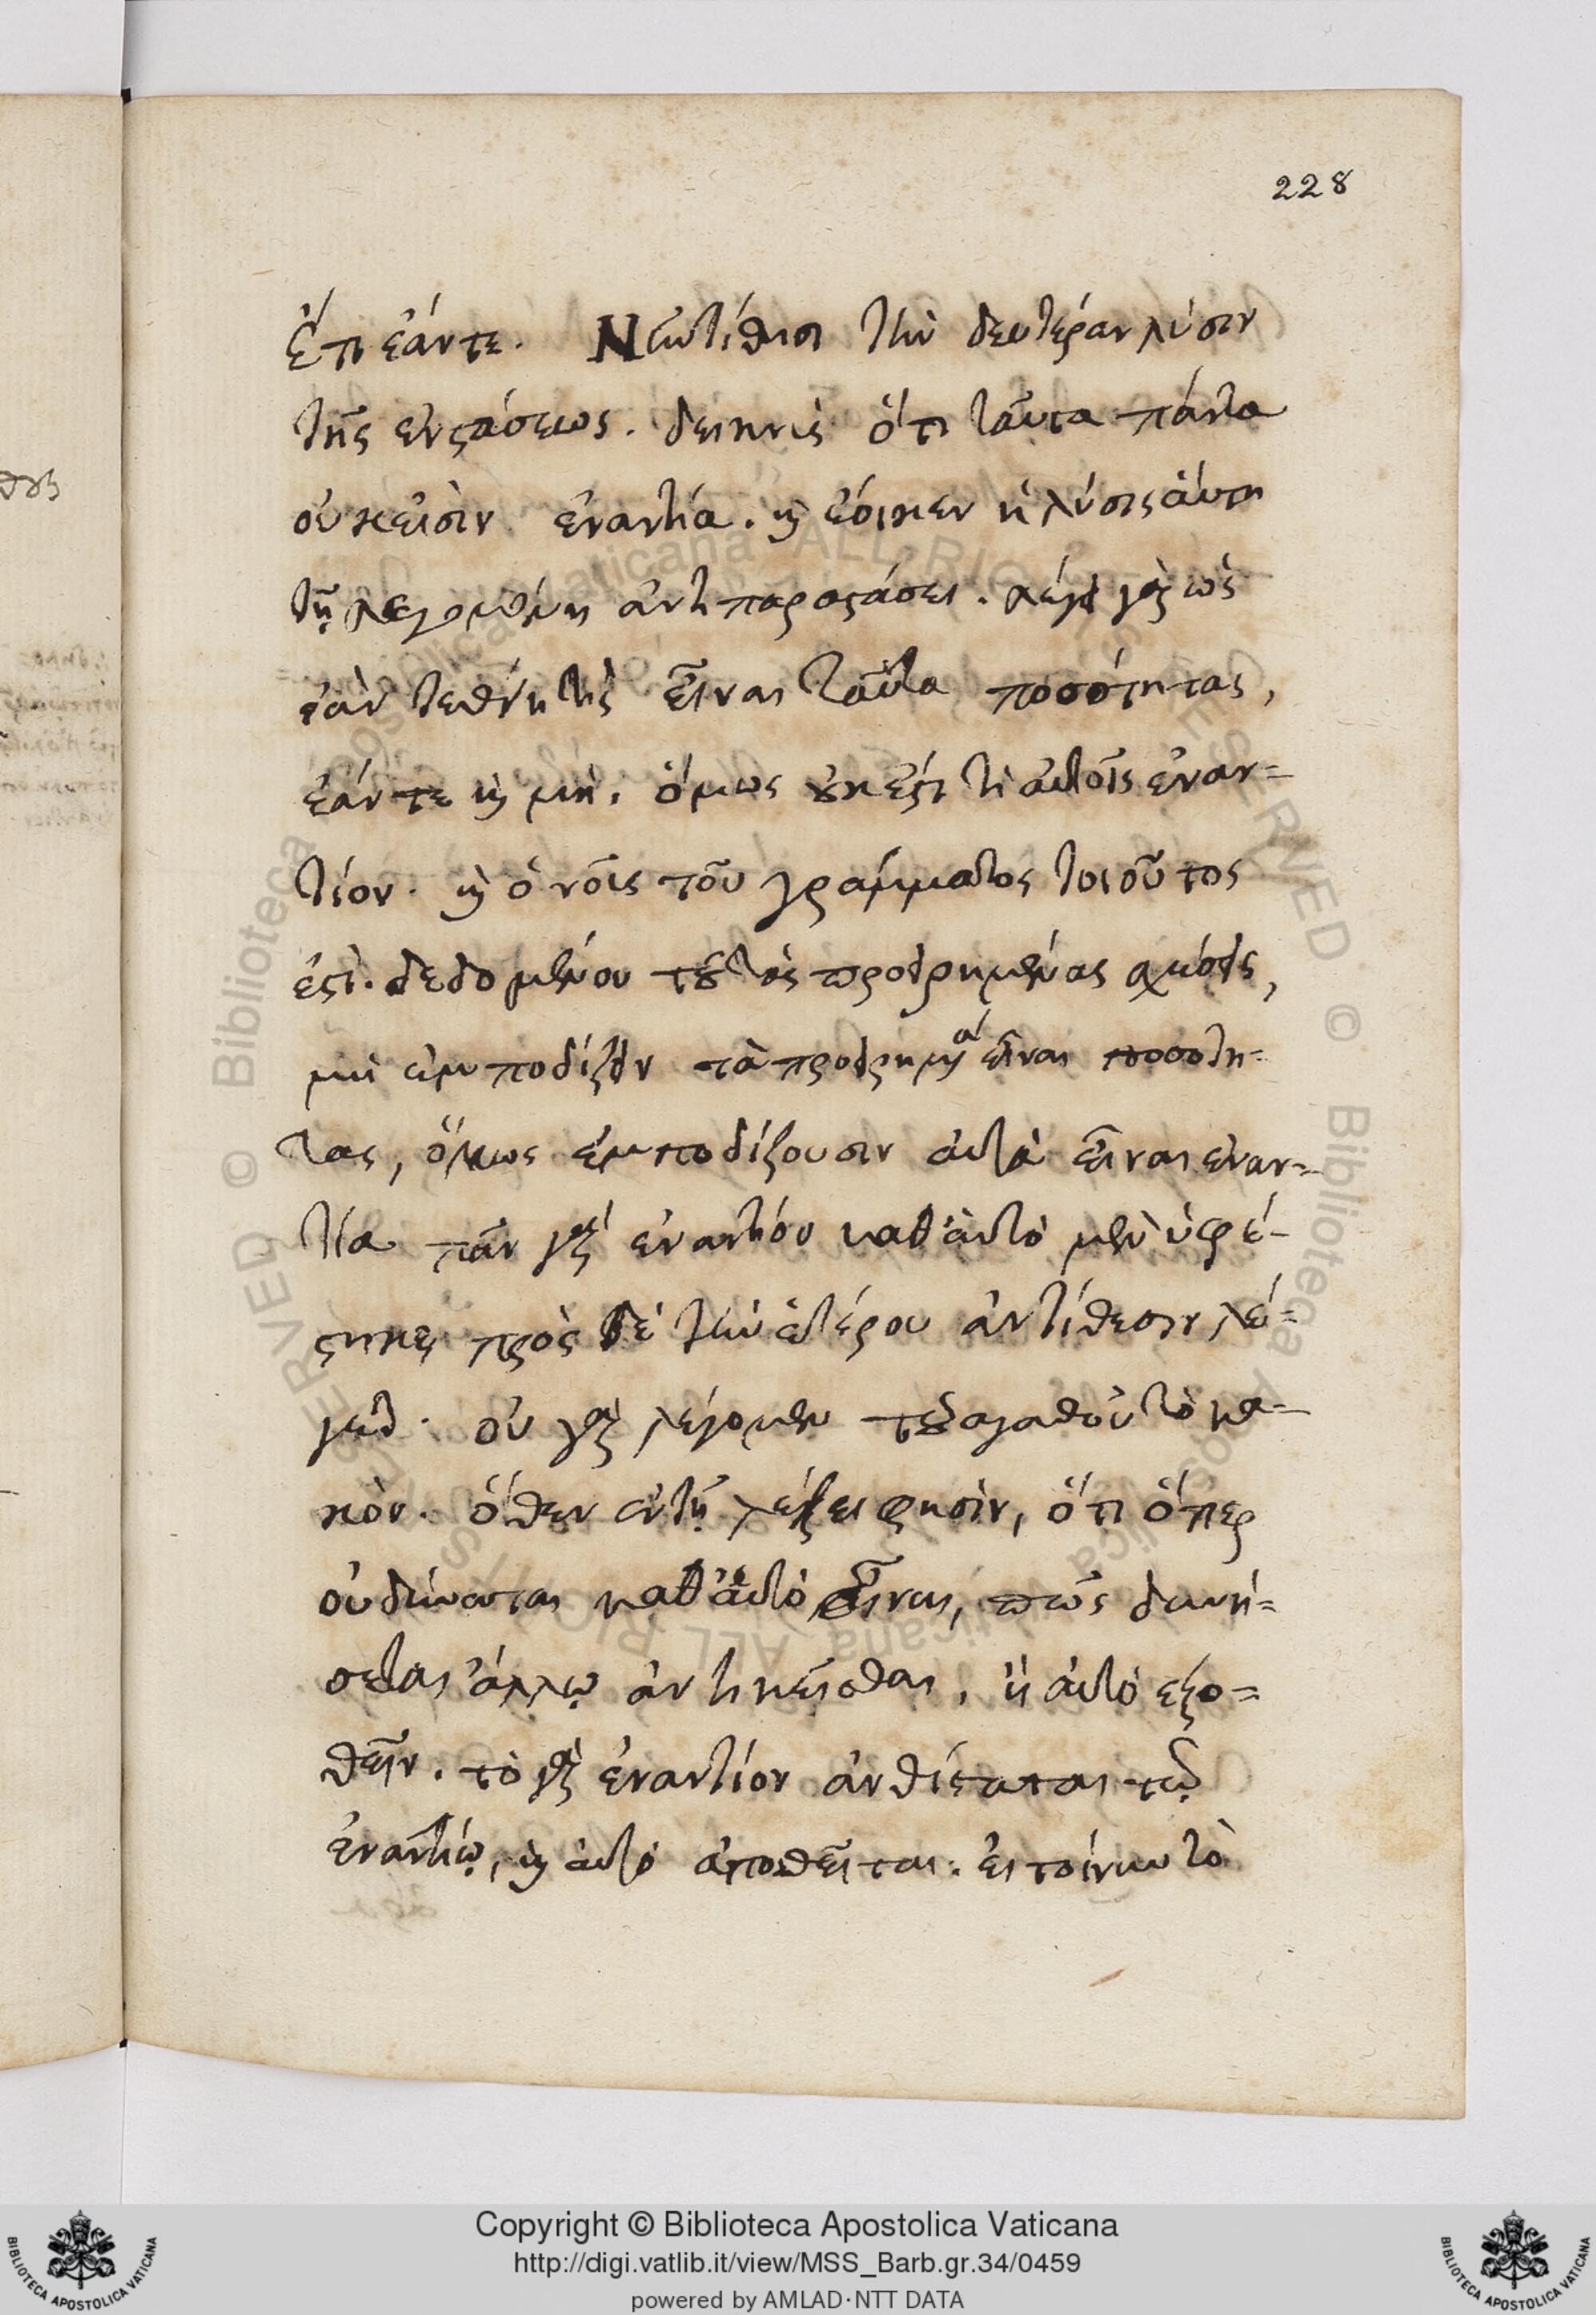 228
Ἔτι ἐάν τε. Νῦν τίθησι τὴν δευτέραν λύσιν
τῆς ἐνστάσεως. δεικνὺς ὅτι ταῦτα πάντα
οὐκ εἰσὶν ἐναντία. καὶ ἔοικεν ἡ λύσις αὕτη
τῇ λεγομένῃ ἀντιπαραστάσει. λέγει γὰρ ὡς
ἐὰν τεθῇ τις εἶναι ταῦτα ποσότητας,
ἐάν τε καὶ μή. ὅμως οὐκ ἔστι τι αὐτοῖς ἐναν=
τίον. καὶ ὁ νοῦς τοῦ γράμματος τοιοῦτος
ἐστί. δεδομένου τοῦ τὰς προειρημένας
μὴ ἐμποδίζειν τὰ προειρημένα εἶναι ποσότη=
τας, ὅμως ἐμποδίζουσιν αὐτὰ εἶναι ἐναν=
τία πᾶν γὰρ ἐναντίον καθ' αὑτὸ μὲν ὑφέ=
στηκε, πρὸς δὲ τὴν ἑτέρου ἀντίθεσιν λέ=
γεται. οὐ γὰρ λέγομεν τοῦ ἀγαθοῦ τὸ κα=
κόν. ὅθεν ἐν τῇ λέξει φησίν, ὅτι ὅπερ
οὐ δύναται καθ' αὑτὸ εἶναι, πῶς δυνή=
σεται ἄλλῳ ἀντικεῖσθαι, ἢ αὐτὸ ἐξο=
θεῖν. τὸ γὰρ ἐναντίον ἀνθίσταται τῷ
ἐναντίῳ, καὶ αὐτὸ ἀποθεῖται. εἰ τοίνυν τὸ
Copyright © Biblioteca Apostolica Vaticana
http://digi.vatlib.it/view/MSS_Barb.gr.34/0459
powered by AMLAD·NTT DATA